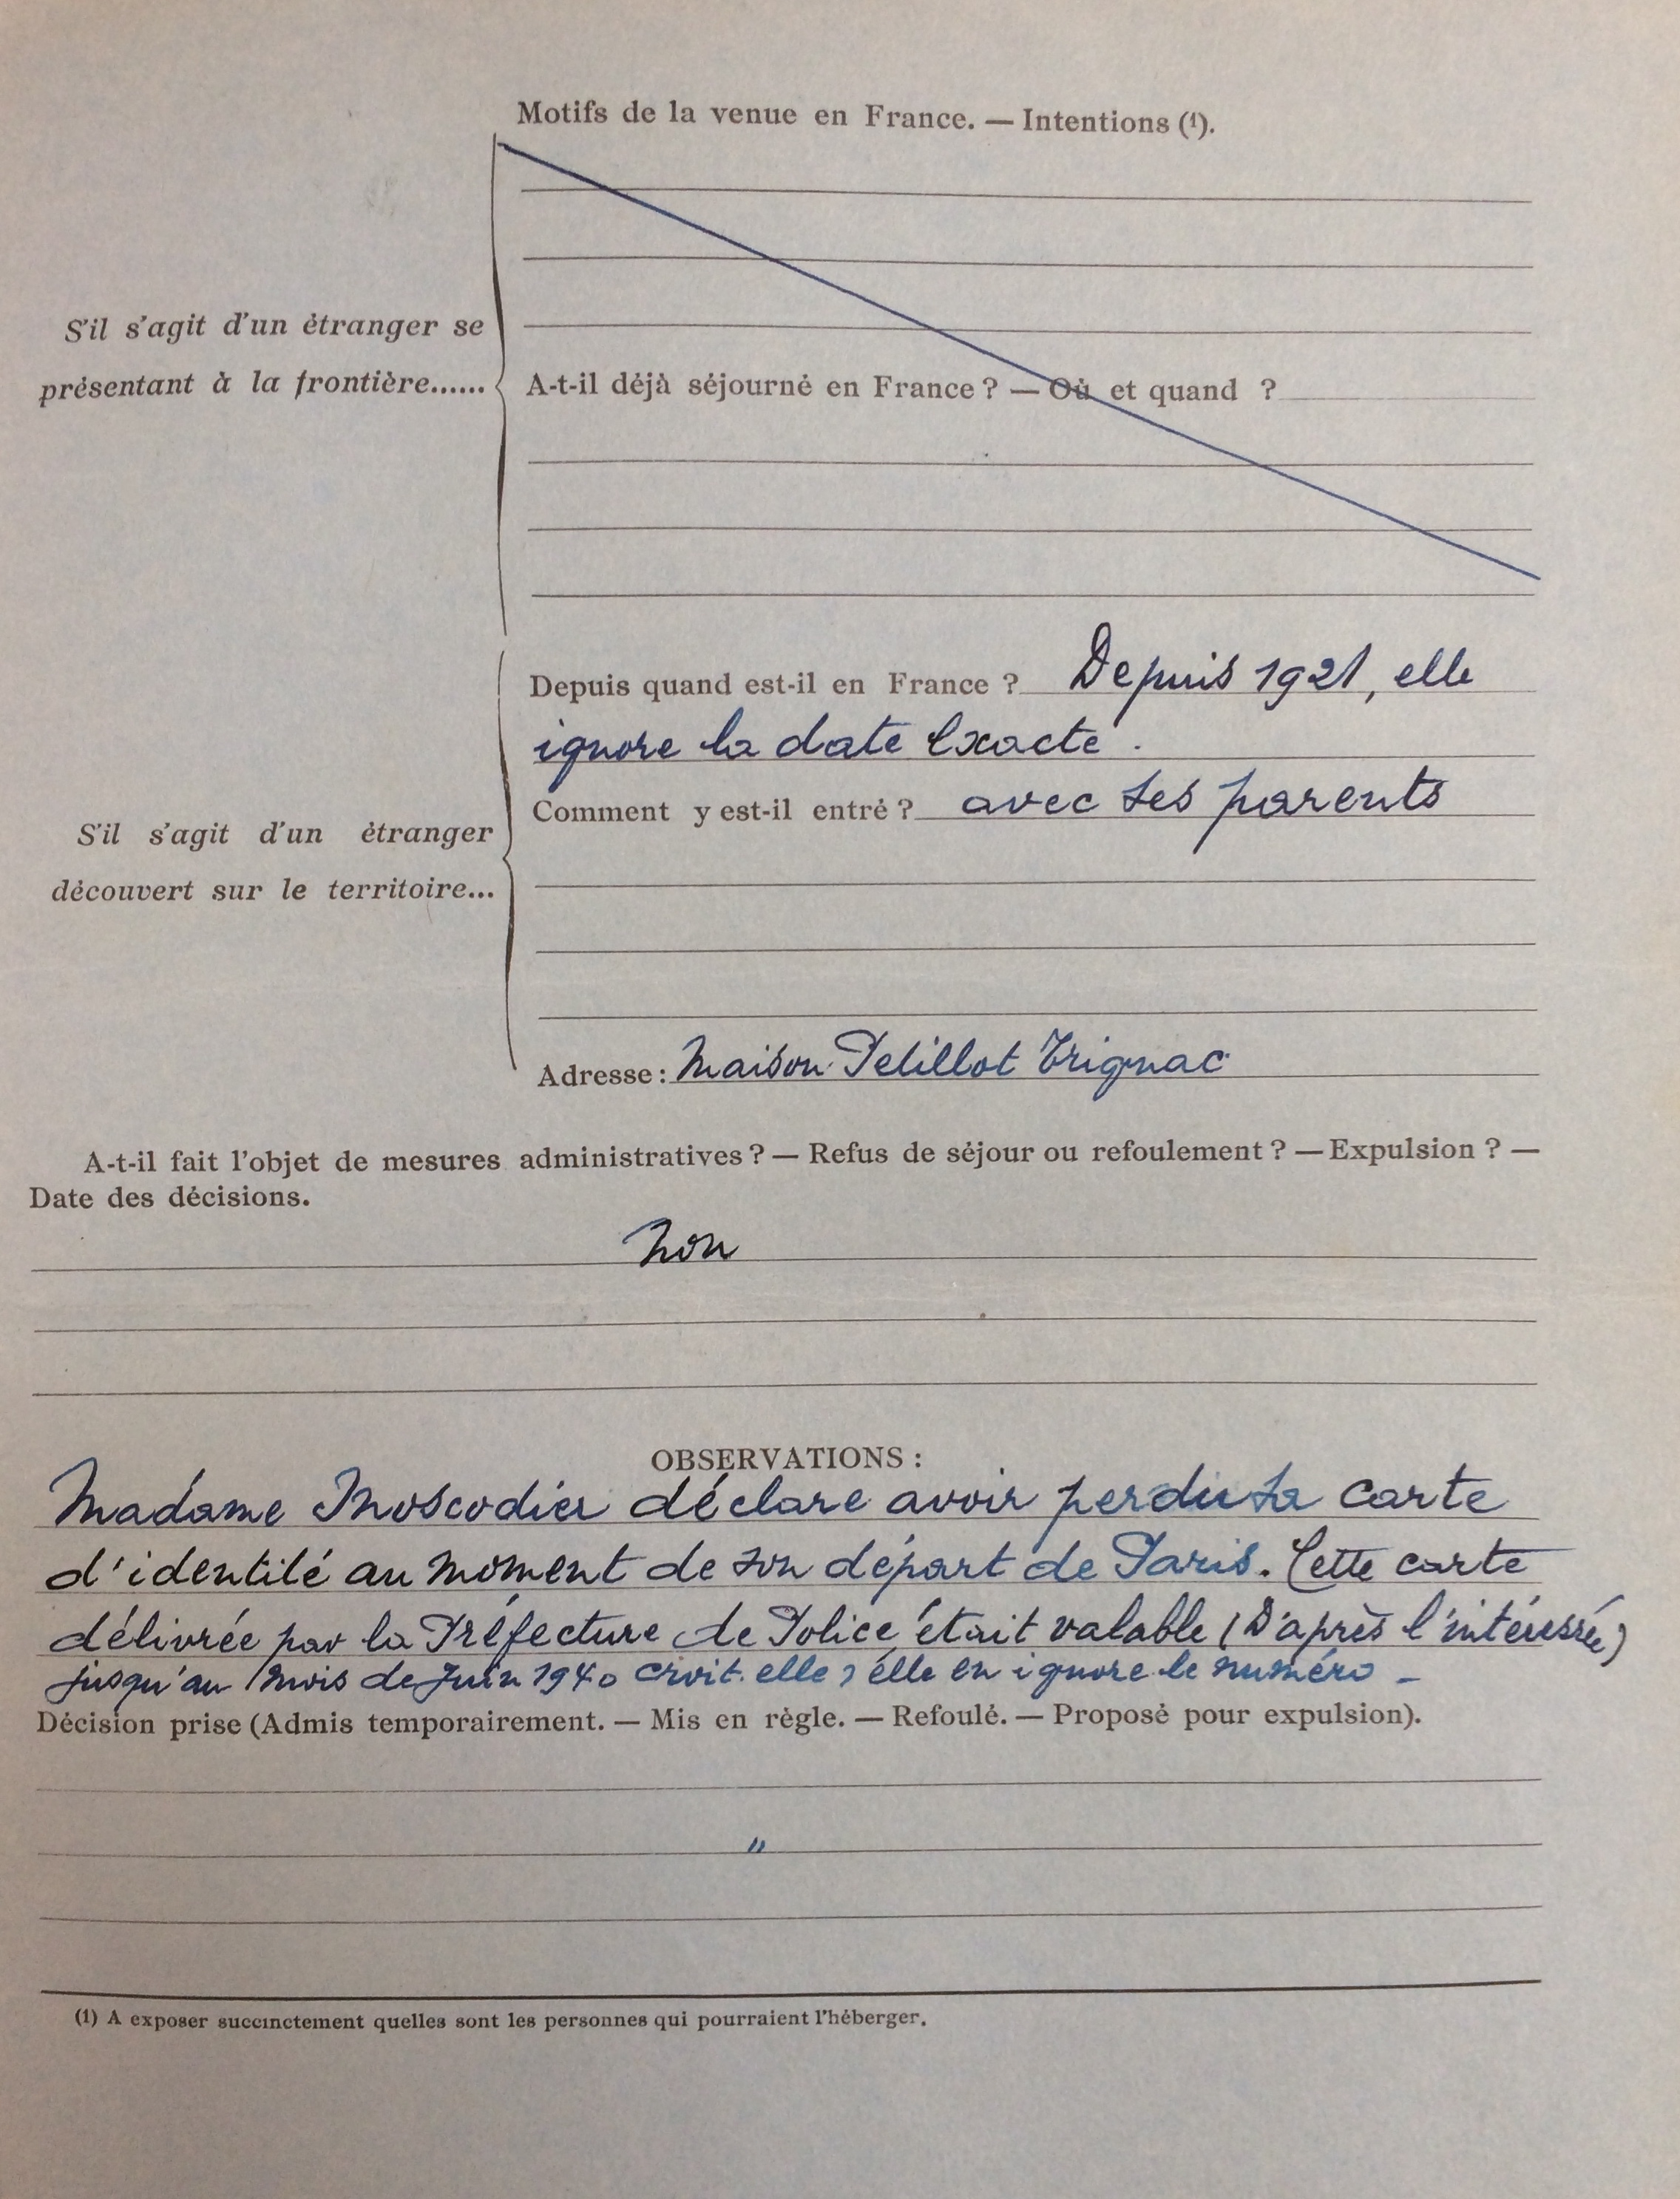 Motifs de la venue en France. — Intentions (1).
S'il s'agit d'un étranger se
présentant à la frontière......
A-t-il déjà séjourné en France ? — Où et quand ?
Depuis quand est-il en France ? Depuis 1921, elle
ignore la date exacte.
Comment y est-il entré ? avec ses parents
S'il s'agit d'un étranger
découvert sur le territoire...
Adresse : Maison Petillot Trignac
A-t-il fait l'objet de mesures administratives ? — Refus de séjour ou refoulement ? — Expulsion ? —
Date des décisions.
Non
OBSERVATIONS :
Madame Moscodier déclare avoir perdu sa carte
d'identité au moment de son départ de Paris. Cette carte
délivrée par la Préfecture de Police était valable (D'après l'intéressée)
jusqu'au mois de Juin 1940 croit-elle, elle en ignore le numéro -
Décision prise (Admis temporairement. — Mis en règle. — Refoulé. — Proposé pour expulsion).
"
(1) A exposer succinctement quelles sont les personnes qui pourraient l'héberger.